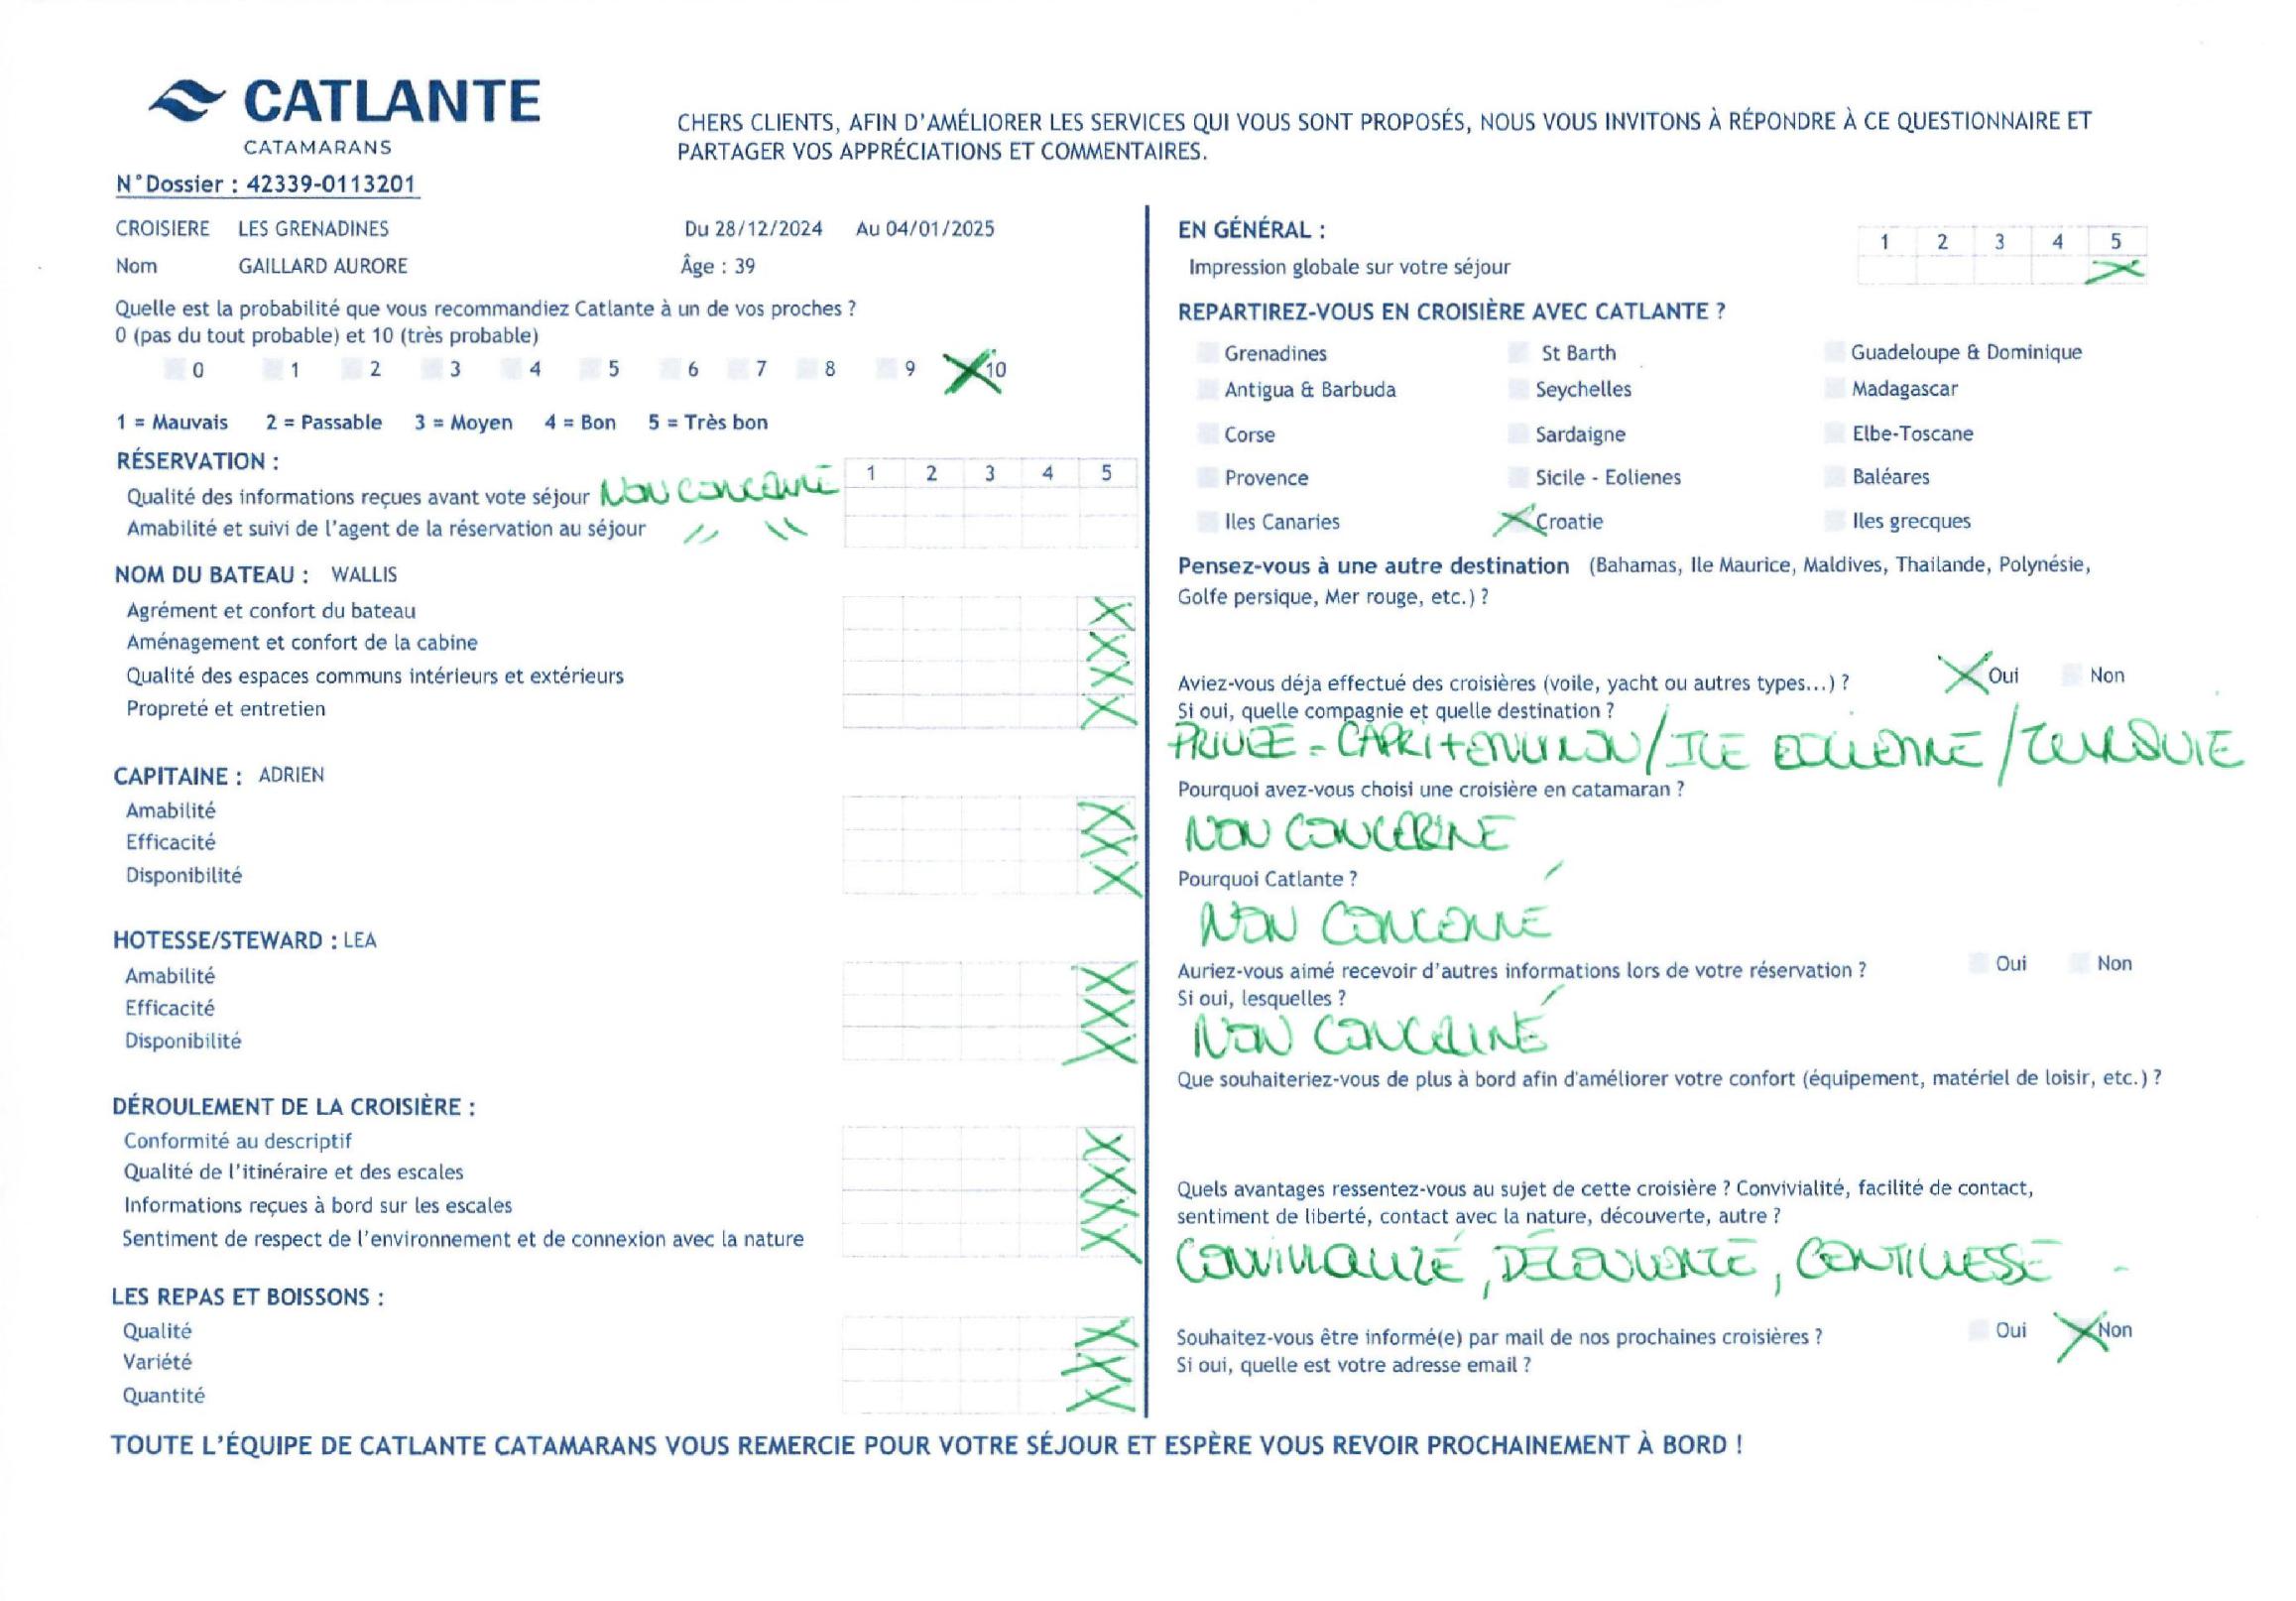 CATLANTE
CATAMARANS
CHERS CLIENTS, AFIN D'AMÉLIORER LES SERVICES QUI VOUS SONT PROPOSÉS, NOUS VOUS INVITONS À RÉPONDRE À CE QUESTIONNAIRE ET
PARTAGER VOS APPRÉCIATIONS ET COMMENTAIRES.
N°Dossier : 42339-0113201
CROISIERE LES GRENADINES Du 28/12/2024 Au 04/01/2025
Nom GAILLARD AURORE Âge : 39
Quelle est la probabilité que vous recommandiez Catlante à un de vos proches ?
0 (pas du tout probable) et 10 (très probable)
0 1 2 3 4 5 6 7 8 9 10
1 = Mauvais 2 = Passable 3 = Moyen 4 = Bon 5 = Très bon
RÉSERVATION :
1 2 3 4 5
Qualité des informations reçues avant vote séjour NON CONCERNÉ
Amabilité et suivi de l'agent de la réservation au séjour // \\
NOM DU BATEAU : WALLIS
Agrément et confort du bateau
Aménagement et confort de la cabine
Qualité des espaces communs intérieurs et extérieurs
Propreté et entretien
CAPITAINE : ADRIEN
Amabilité
Efficacité
Disponibilité
HOTESSE/STEWARD : LEA
Amabilité
Efficacité
Disponibilité
DÉROULEMENT DE LA CROISIÈRE :
Conformité au descriptif
Qualité de l'itinéraire et des escales
Informations reçues à bord sur les escales
Sentiment de respect de l'environnement et de connexion avec la nature
LES REPAS ET BOISSONS :
Qualité
Variété
Quantité
EN GÉNÉRAL :
1 2 3 4 5
Impression globale sur votre séjour
REPARTIREZ-VOUS EN CROISIÈRE AVEC CATLANTE ?
Grenadines St Barth Guadeloupe & Dominique
Antigua & Barbuda Seychelles Madagascar
Corse Sardaigne Elbe-Toscane
Provence Sicile - Eolienes Baléares
Iles Canaries Croatie Iles grecques
Pensez-vous à une autre destination (Bahamas, Ile Maurice, Maldives, Thailande, Polynésie,
Golfe persique, Mer rouge, etc.) ?
Aviez-vous déja effectué des croisières (voile, yacht ou autres types...) ? Oui Non
Si oui, quelle compagnie et quelle destination ?
PRIVEE = CAPRI + ENVIRON / ILE EOLIENNE / TURQUIE
Pourquoi avez-vous choisi une croisière en catamaran ?
NON CONCERNE
Pourquoi Catlante ?
NON CONCERNÉ
Auriez-vous aimé recevoir d'autres informations lors de votre réservation ? Oui Non
Si oui, lesquelles ?
NON CONCERNÉ
Que souhaiteriez-vous de plus à bord afin d'améliorer votre confort (équipement, matériel de loisir, etc.) ?
Quels avantages ressentez-vous au sujet de cette croisière ? Convivialité, facilité de contact,
sentiment de liberté, contact avec la nature, découverte, autre ?
CONVIVIALITÉ, DÉCOUVERTE, GENTILLESSE
Souhaitez-vous être informé(e) par mail de nos prochaines croisières ? Oui Non
Si oui, quelle est votre adresse email ?
TOUTE L'ÉQUIPE DE CATLANTE CATAMARANS VOUS REMERCIE POUR VOTRE SÉJOUR ET ESPÈRE VOUS REVOIR PROCHAINEMENT À BORD !